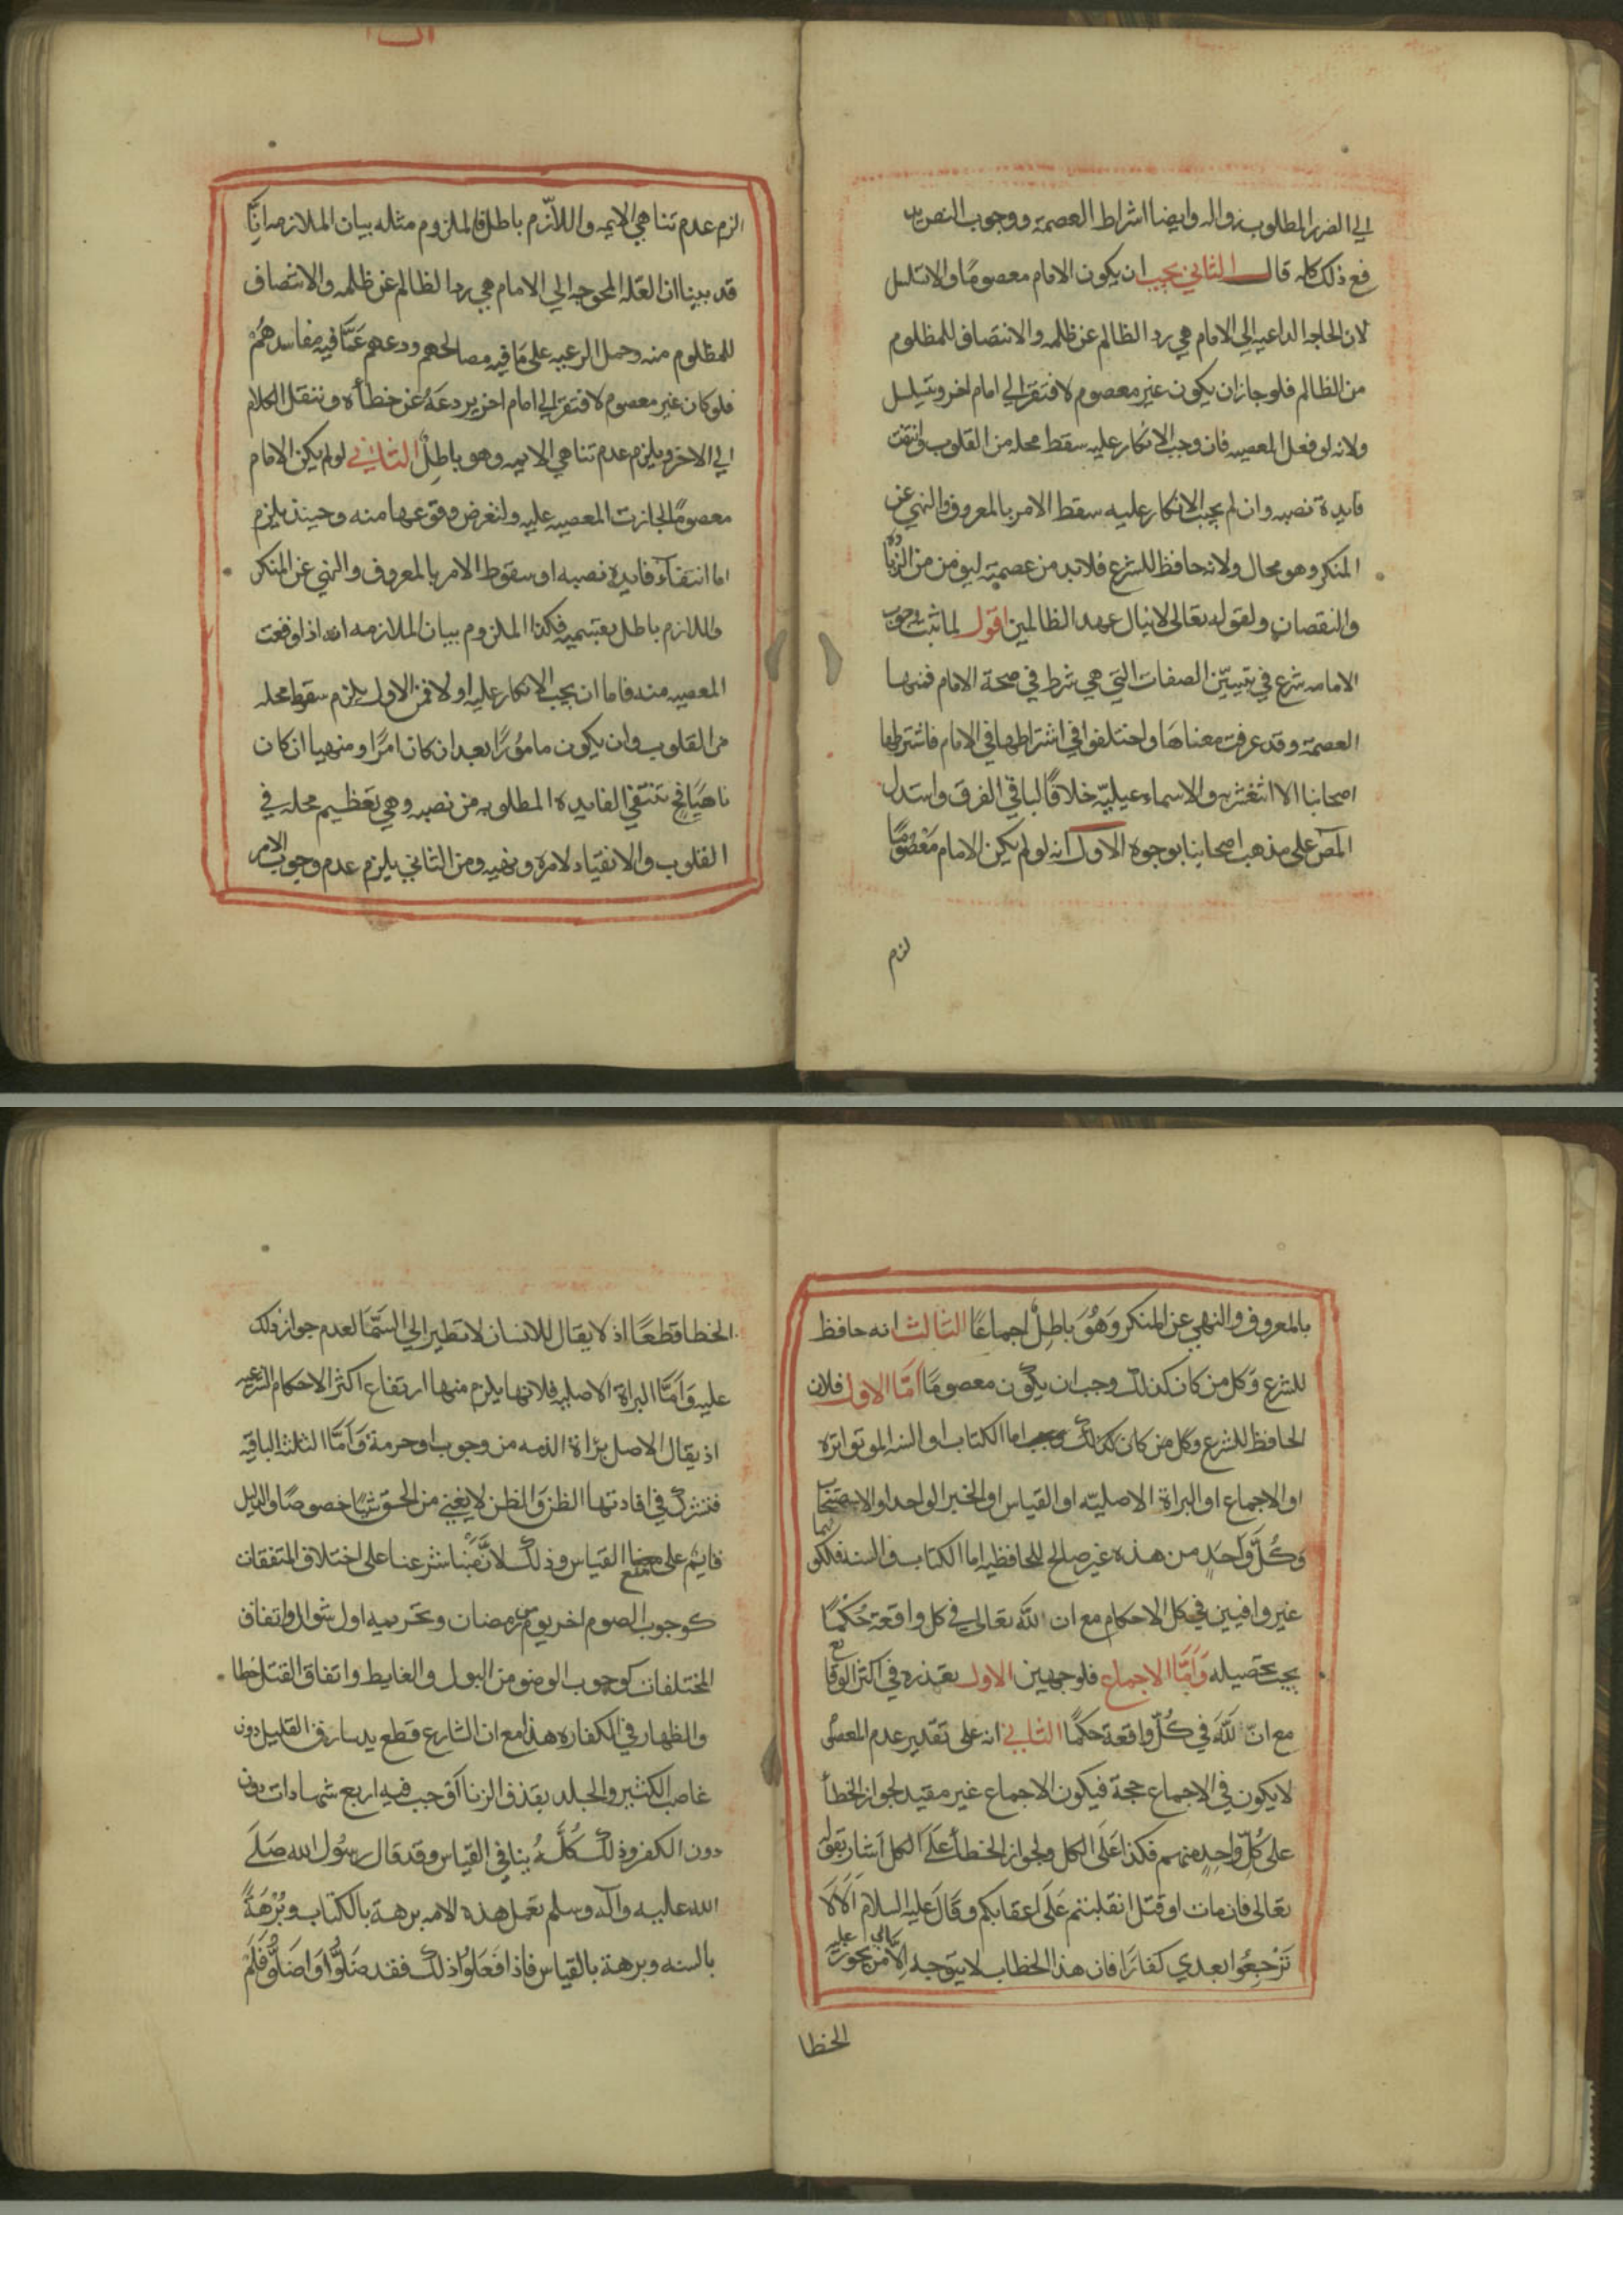 الي الضرر المطلوب زواله وايضا اشراط العصمة ووجوب النص يد
فع ذلك كله قال الثاني يجب ان يكون الامام معصومًا والا تسلسل
لان الحاجه الداعيه الي الامام هي رد الظالم عن ظلمه والانتصاف للمظلوم
من الظالم فلو جاز ان يكون غير معصوم لافتقر الي امام اخر ويتسلسل
ولانه لو فعل المعصيه فان وجب الانكار عليه سقط محله من القلوب وانتفت
فايدة نصبه وان لم يجب الانكار عليه سقط الامر بالمعروف والنهي عن
المنكر وهو محال ولانه حافظ للشرع فلابد من عصمته ليؤمن من الزيادة
والنقصان ولقوله تعالى لاينال عهد الظالمين اقول لما ثبت وجوب
الامامه شرع في تبيين الصفات التي هي شرط في صحة الامام فمنها
العصمة وقد عرفت معناها واختلفوا في اشتراطها في الامام فاشترطها
اصحابنا الاثنعشريه والاسماعيليّه خلافًا لباقي الفرق واستدل
المص على مذهب اصحابنا بوجوه الاول انه لو لم يكن الامام معصومًا
لزم
الزم عدم تناهي الايمه واللاّزم باطل فالملزوم مثله بيان الملازمه انّا
قد بينا ان العلّه المحوجه الي الامام هي رد الظالم عن ظلمه والانتصاف
للمظلوم منه وحمل الرعيه على مَا فيه مصالحهم وردعهم عَمّا فيه مفاسدهُم
فلو كان غير معصوم لافتقر الي امام اخر يردعَهُ عن خطأه وننقل الكلام
الي الاخر ويلزم عدم تناهي الايمه وهو باطِلٌ الثاني لو لم يكن الامام
معصومًا لجازت المعصيه عليه ولنفرض وقوعها منه وحينئذ يلزم
اما انتفآء فايدة نصبه او سقوط الامر بالمعروف والنهي عن المنكر
واللازم باطل بقسميه فكذا الملزوم بيان الملازمه انه اذا وقعت
المعصيه منه فاما ان يجب الانكار عليه اولا فمن الاول يلزم سقوط محله
من القلوب وان يكون مامورًا بعد ان كان امرًا ومنهيا ان كان
ناهيًا فح تنتفي الفايده المطلوبه من نصبه وهي تعظيم محله في
القلوب والانقياد لامره ونهيه ومن الثاني يلزم عدم وجوب الامر
بالمعروف والنهي عن المنكر وَهُوَ بَاطِلٌ اجماعًا الثالث انه حافظ
للشرع وَكل من كان كذلك وجب ان يكون معصومًا امّا الاول فلان
الحافظ للشرع وكل من كان كذلك وجب اما الكتاب او السنه المتواتره
او الاجماع او البراة الاصليّه او القياس او الخبر الواحد او الاستصحاب
وَكُلّ وَاحَدٍ من هذه غير صالح للمحافظيه اما الكتاب والسنه فلكونهما
غير وافيين في كل الاحكام مع ان للّه تعالى في كل واقعة حُكْمًا
يجب تحصيله وَامّا الاجماع فلوجهين الاول تعذره في اكثر الوقايع
مع انّ للّهَ في كُلّ واقعة حكمًا الثاني انه على تقدير عدم المعصُوم
لايكون في الاجماع حجة فيكون الاجماع غير مفيد لجواز الخطأ
على كُلّ وَاحِدٍ منهم فكذا عَلَى الكل ولجواز الخطأ عَلَى الكل اشار بقوله
تعالى فان مات او قتل انقلبتم عَلَى اعقابكم وقَالَ عليه السلام اَلا لاَ
تَرْجِعُوا بعدي كفارًا فان هذا الخطاب لايتوجه اِلاّ الي من يجوز عليه
الخطا
الخطا قطعًا اذ لا يقال للانسان لاتطير الي السّمَا لعدم جواز ذلك
عليه وَامَّا البراة الاصليه فلانها يلزم منها ارتفاع اكثر الاحكام الشرعيه
اذ يقال الاصل برَاة الذمه من وجوب او حرمة وَامّا الثلثه الباقيه
فتشترك في افادتها الظن وَالظن لايغني من الحق شيًا خصوصًا والدليل
قايم على منع القياس وذلك لانَّ مَبْنا شرعنا على اختلاف المتفقات
كوجوب الصوم اخر يوم من رمضان وتحريمه اول شوال واتفاق
المختلفات كوجوب الوضو من البول والغايط واتفاق القتل خطا
والظهار في الكفاره هذا مع ان الشارع قطع يد سارق القليل دون
غاصب الكثير والجلد بقذف الزنا اوجب فيه اربع شهادات دون
دون الكفر وذلك كُلُّهُ ينافي القيَاس وقد قال رسُول الله صَلَى
الله عليه وآله وسلم تعمل هذه الامه برهة بالكتاب وبُرْهَةً
بالسنه وبرهة بالقياس فاذا فَعَلوُا ذلك فقد ضَلُّوُا وَاضَلُّوُ فَلَمْ